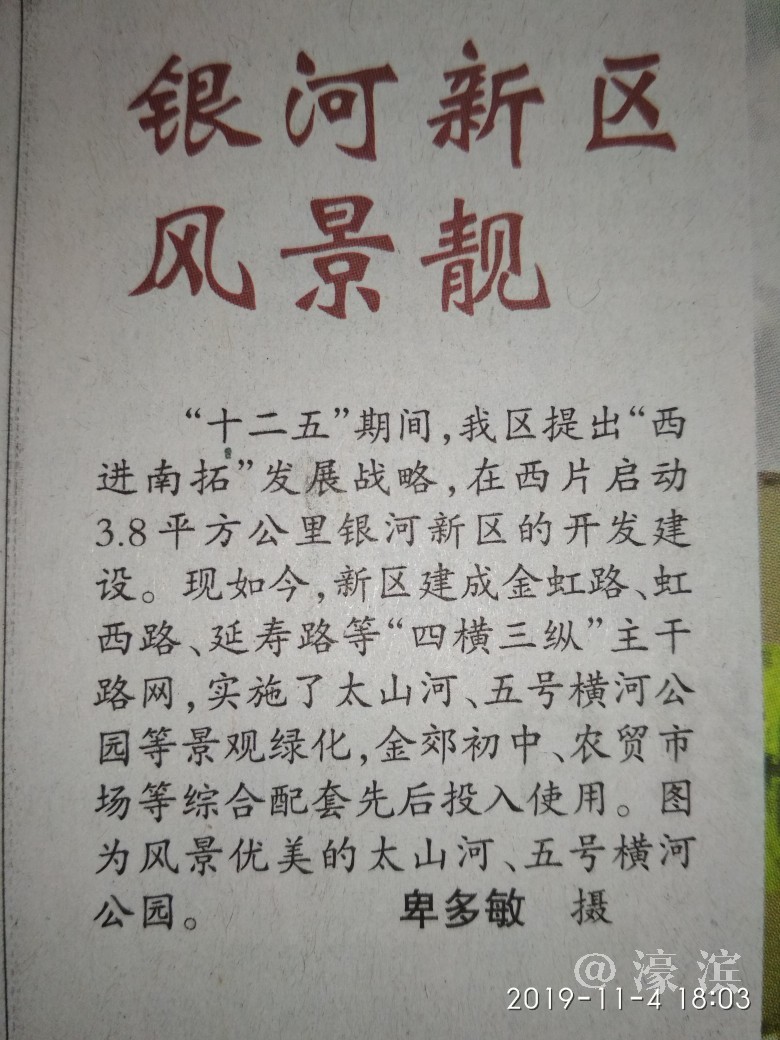 银河新区
风景靓
“十二五”期间，我区提出“西
进南拓”发展战略，在西片启动
3.8平方公里银河新区的开发建
设。现如今，新区建成金虹路、虹
西路、延寿路等“四横三纵”主干
路网，实施了太山河、五号横河公
园等景观绿化，金郊初中、农贸市
场等综合配套先后投入使用。图
为风景优美的太山河、五号横河
公园。 卑多敏 摄
@濠滨
2019-11-4 18:03